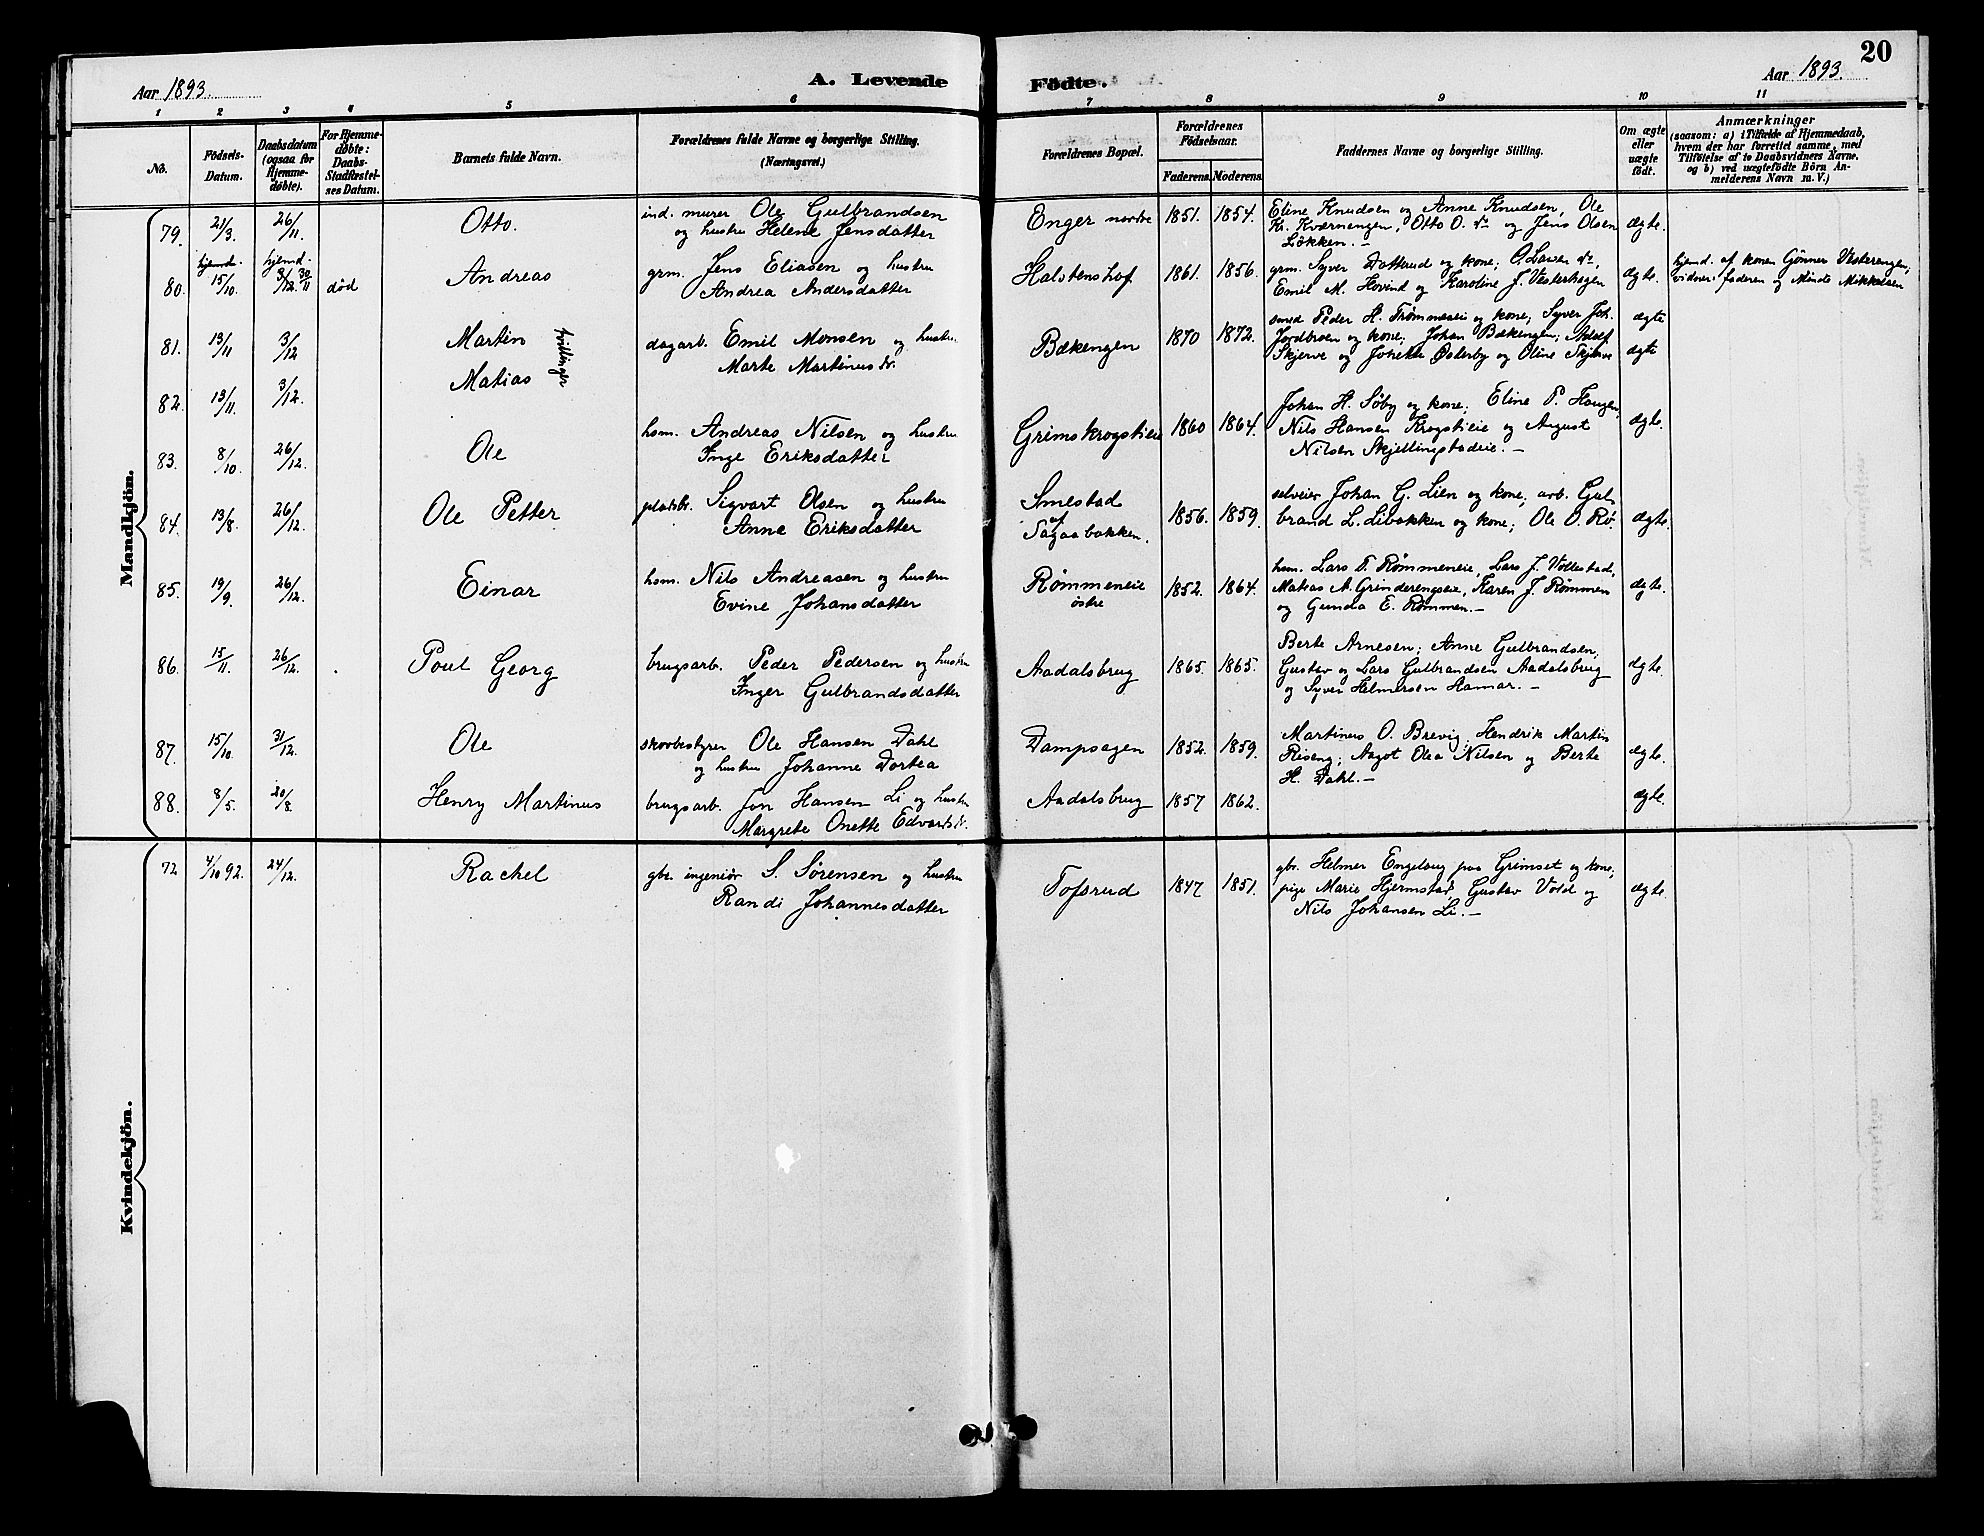 20
Aar 1893.
A. Levende Födte.
Aar 1893.
1 2 3 4 5 6 7 8 9 10 11
No.
Födsels-Datum.
Daabsdatum (ogsaa for Hjemme-døbte).
For Hjemme-døbte: Daabs-Stadfæstel-ses Datum.
Barnets fulde Navn.
Forældrenes fulde Navne og borgerlige Stilling. (Næringsvei.)
Forældrenes Bopæl.
Forældrenes Födselsaar.
Faderens. Moderens.
Faddernes Navne og borgerlige Stilling.
Om ægte eller uægte födt.
Anmærkninger
(saasom: a) i Tilfælde af Hjemmedaab, hvem der har forrettet samme, med Tilföielse af to Daabsvidners Navne, og b) ved uægtefödte Börn Anmelderens Navn m. V.)
Mandkjön.
79. 21/3. 26/11. Otto. ind. murer Ole Gulbrandsen Enger nordre 1851. 1854. Eline Knudsen og Anne Knudsen, Ole ægte.
og hustru Helene Jensdatter Kr. Kværnengen, Otto O. og Jens Olsen
Løkken. —
hjemd. hjemd.
80. 15/10. 3/12. 30/11 død Andreas grm. Jens Eliasen og hustru Halstenshof. 1861. 1856. grm. Syver Dotterud og kone; ægte. hjemd. af konen Gønner Vesterengen,
Andrea Andersdatter Emil M. Hovind og Karoline J. Vesterhagen vidner: faderen og Minda Mikkelsen
81. 13/11 3/12 Martin tvillinger dagarb. Emil Monsen og hustru Bækengen 1870 1872. smed Peder H. Trømmeseie og kone; Syver Joh. ægte
82. 13/11. 3/12. Matias Marte Martinusd. Jordbroen og kone; Johan Bækengen; Adolf ægte
Skjerve og Jonette Østerby og Oline Skjerve
83. 8/10. 26/12. Ole hsm. Andreas Nilsen og hustru Grimskrogstieie 1860 1864. Johan H. Søby og kone; Eline P. Haugen, ægte.
Inge Eriksdatter Nils Hansen Krogstieie og August
Nilsen Skjellingstadeie. —
84. 13/8. 26/12. Ole Petter pladsbr. Sigvart Olsen og hustru Smestad 1856. 1859. selveier Johan G. Lien og kone; arb. Gul- ægte.
Anne Eriksdatter af Sagaabakken. brand L. Libakken og kone; Ole O. Rø.
85. 19/9. 26/12. Einar hsm. Nils Andreasen og hustru Rømmeneie østre 1852. 1864. hsm. Lars T. Rømmeneie, Lars J. Vollestad, ægte.
Evine Johansdatter Matias A. Grinderengseie, Karen J. Rømmen
og Gunda E. Rømmen. —
86. 15/11. 26/12. Poul Georg brugsarb. Peder Pedersen og hustru Aadalsbrug 1865. 1865. Berte Arnesen; Anne Gulbrandsen; ægte.
Inger Gulbrandsdatter Gustav og Lars Gulbrandsen Aadalsbrug
og Syver Helmersen Hamar. —
87. 15/10. 31/12. Ole skovbestyrer Ole Hansen Dahl Dampsagen 1852. 1859. Martinus O. Brevig, Hendrik Martin ægte.
og hustru Johanne Dortea Riseng; Aagot Olea Nilsen og Berte
H. Dahl. —
88. 8/5. 20/8. Henry Martinus brugsarb. Jon Hansen Li og hustru Aadalsbrug 1857 1862. ægte.
Margrete Onette Edvardsd.
Kvindekjön.
72 4/10 92. 24/12. Rachel gbr. ingeniør S. Sørensen og hustru Tofsrud 1847 1851. gbr. Helmer Engelaug paa Grimset og kone; ægte.
Randi Johannesdatter pige Marie Hjermstad, Gustav Vold og
Nils Johansen Li. —